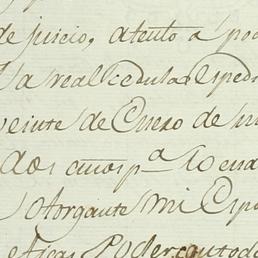 de juicio, atento a pod
la real cedula Esped
veinte de Enero de m
dos años pª lo cua
otorgante mi Espo
Poder con todo